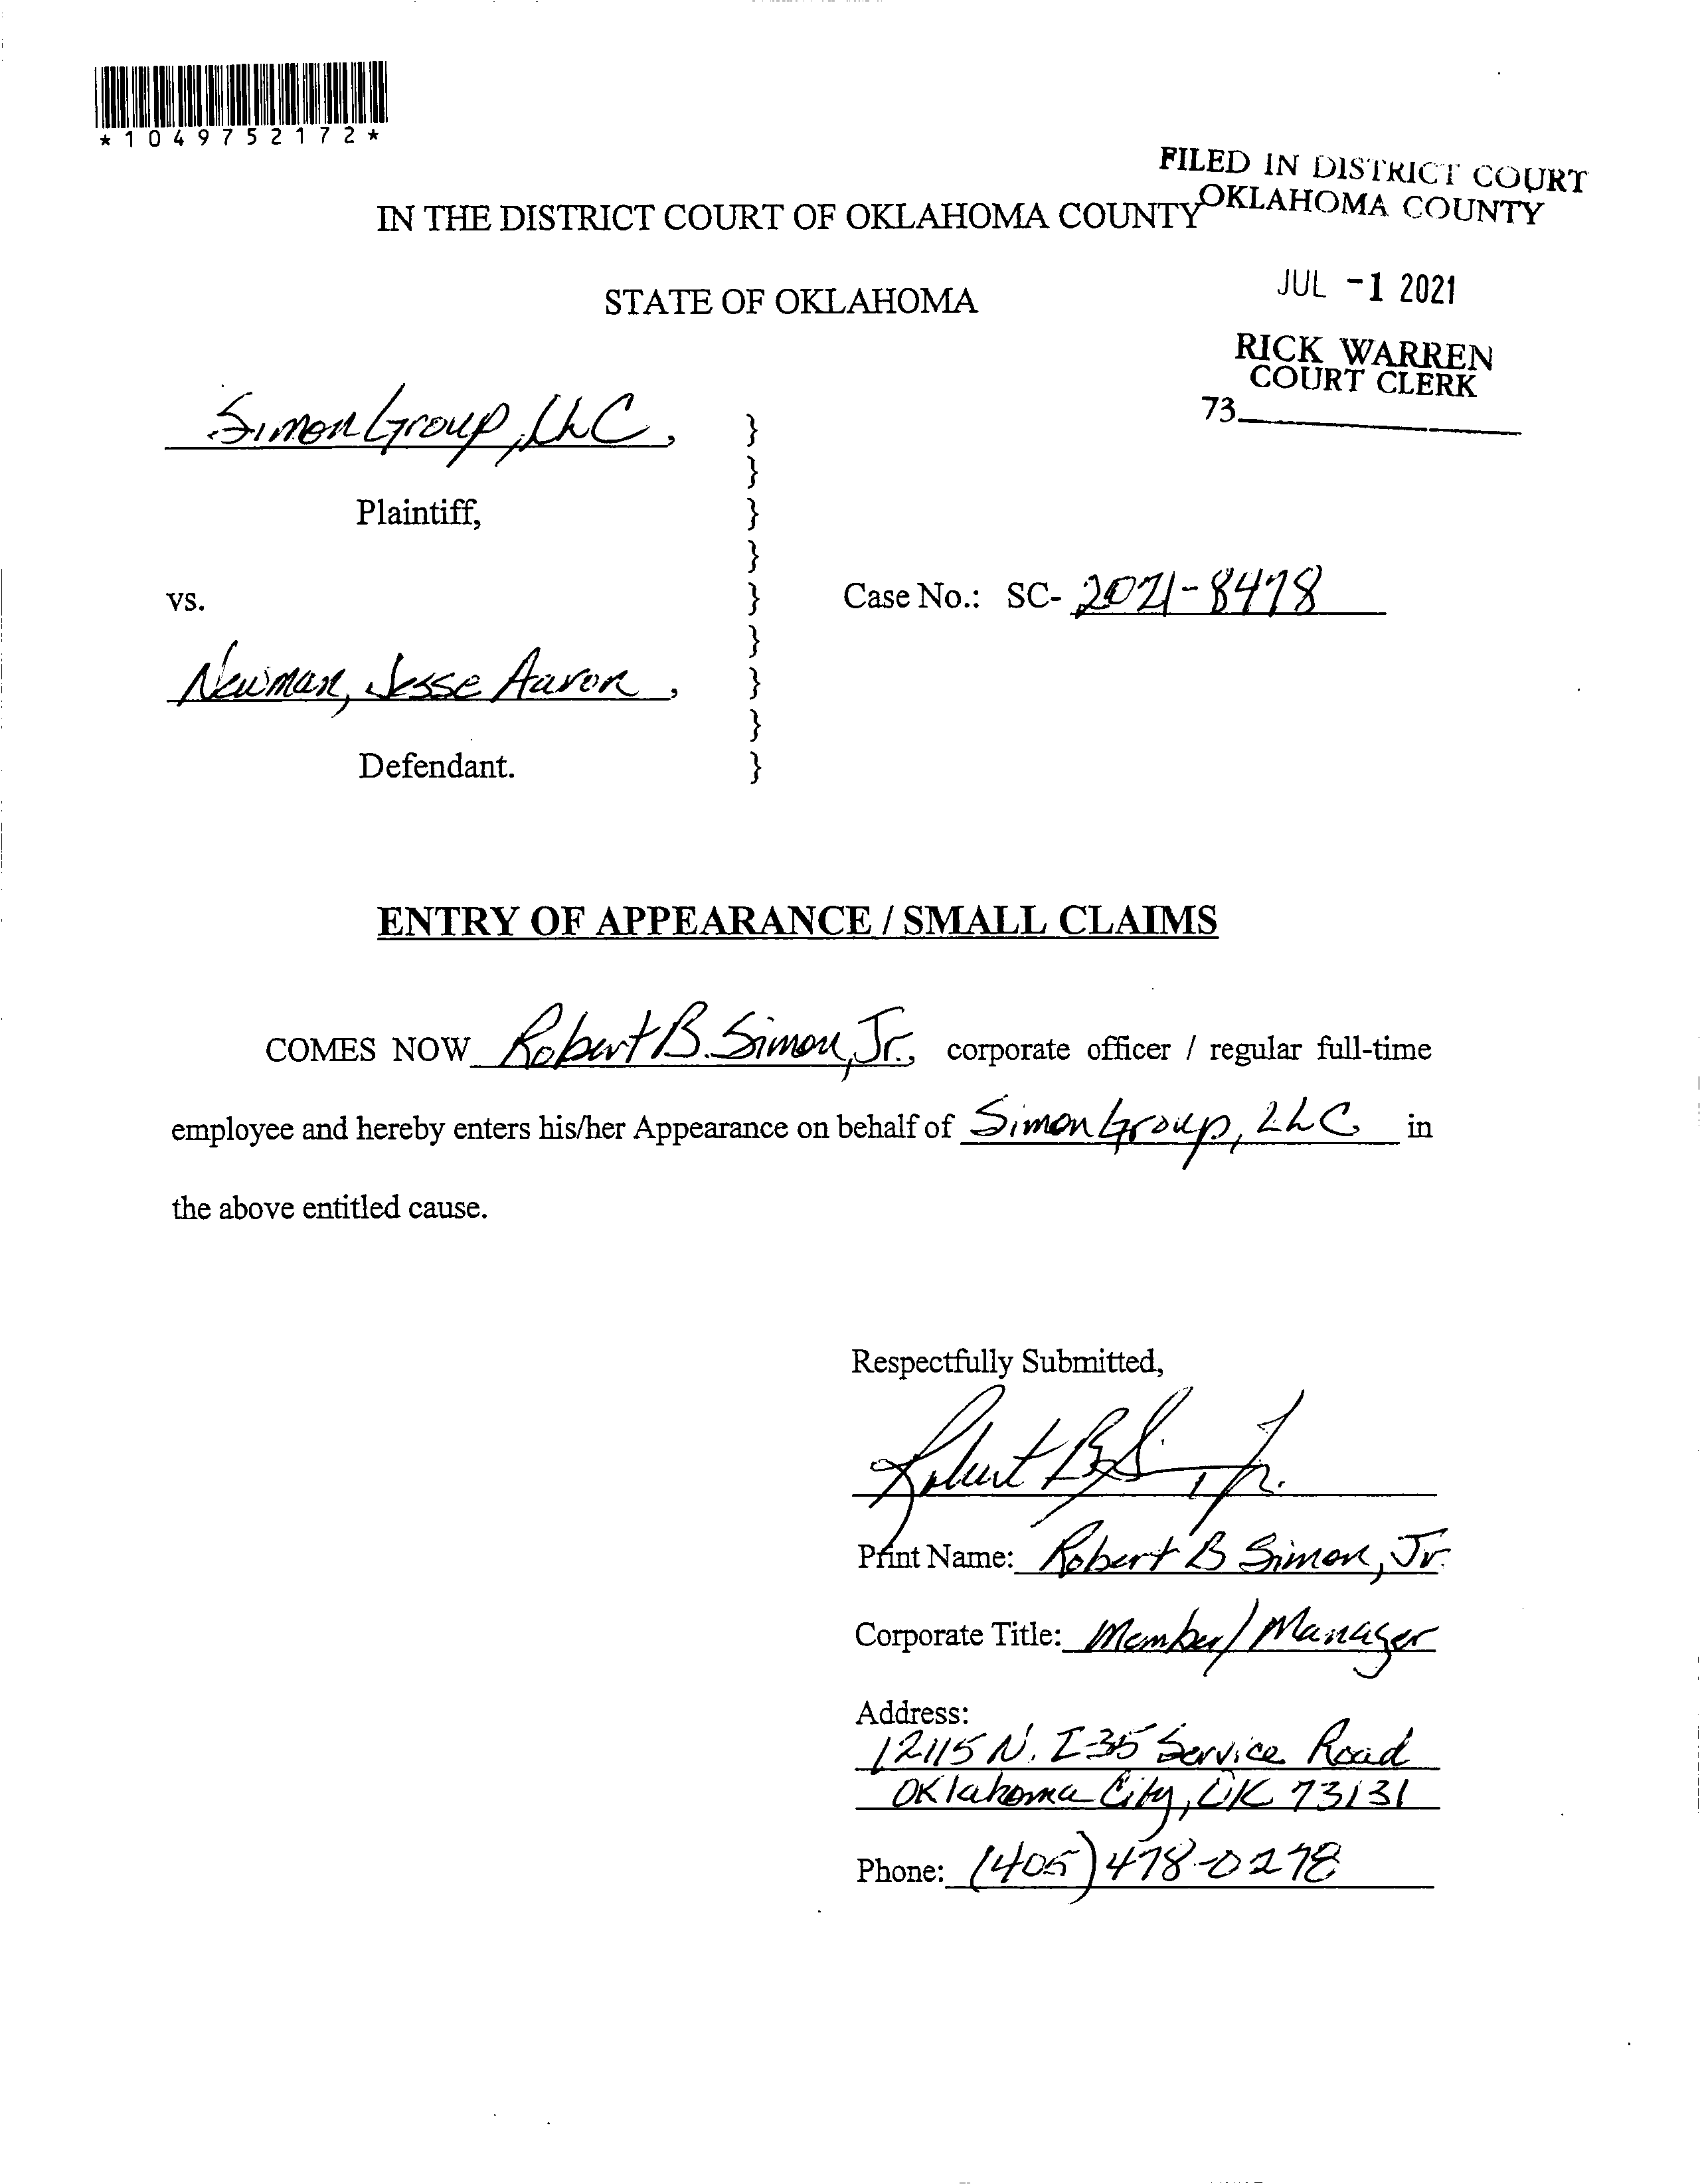 *1049752172*
FILED IN DISTRICT COURT
OKLAHOMA COUNTY
IN THE DISTRICT COURT OF OKLAHOMA COUNTY
STATE OF OKLAHOMA
JUL -1 2021
RICK WARREN
COURT CLERK
73
Simon Group, LLC,
}
}
Plaintiff,
}
}
vs.
}
Case No.: SC- 2021-8478
}
Newman, Jesse Aaron,
}
}
Defendant.
}
ENTRY OF APPEARANCE / SMALL CLAIMS
COMES NOW Robert B. Simon, Jr., corporate officer / regular full-time
employee and hereby enters his/her Appearance on behalf of Simon Group, LLC in
the above entitled cause.
Respectfully Submitted,
Robert B S, Jr.
Print Name: Robert B Simon, Jr.
Corporate Title: Member/Manager
Address:
12115 N. I-35 Service Road
Oklahoma City, OK 73131
Phone: (405) 478-0278